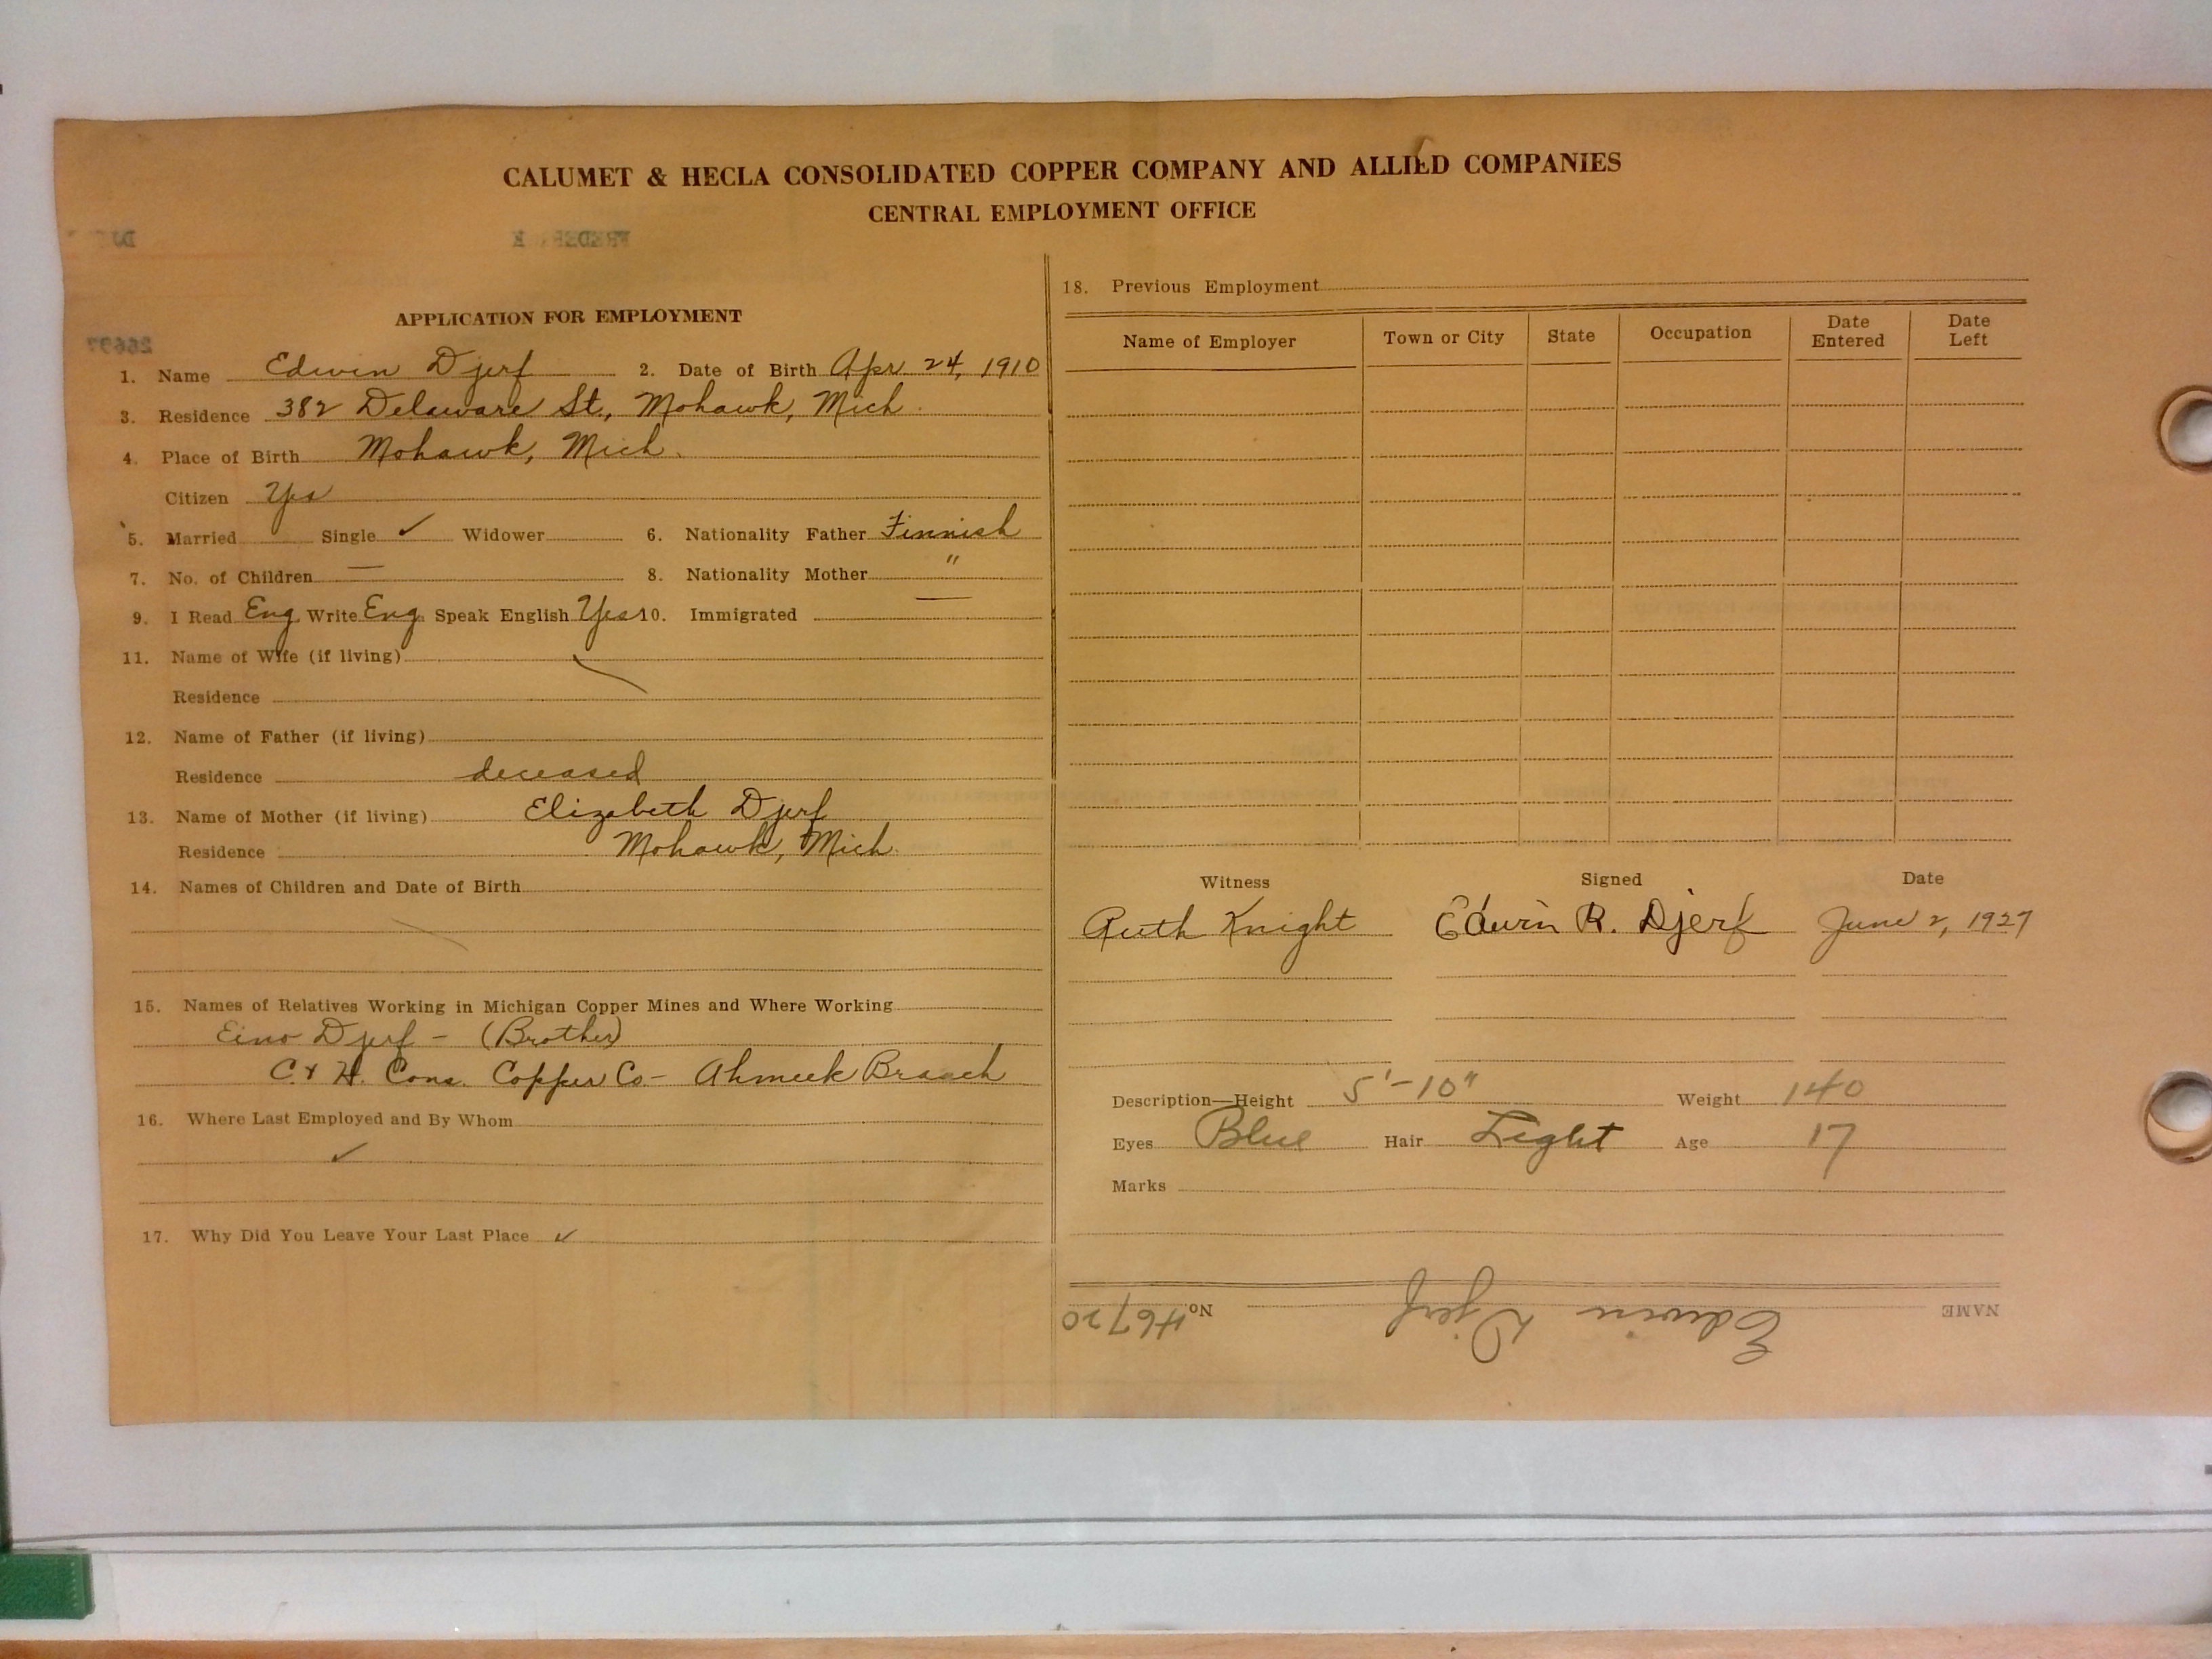 CALUMET & HECLA CONSOLIDATED COPPER COMPANY AND ALLIED COMPANIES
CENTRAL EMPLOYMENT OFFICE
APPLICATION FOR EMPLOYMENT
26697
1. Name Edwin Djerf 2. Date of Birth Apr 24, 1910
3. Residence 382 Delaware St., Mohawk, Mich.
4. Place of Birth Mohawk, Mich.
Citizen Yes
5. Married Single ✓ Widower 6. Nationality Father Finnish
7. No. of Children — 8. Nationality Mother "
9. I Read Eng. Write Eng. Speak English Yes 10. Immigrated —
11. Name of Wife (if living)
Residence
12. Name of Father (if living)
Residence deceased
13. Name of Mother (if living) Elizabeth Djerf
Residence Mohawk, Mich.
14. Names of Children and Date of Birth
15. Names of Relatives Working in Michigan Copper Mines and Where Working
Eino Djerf - (Brother)
C. & H. Cons. Copper Co - Ahmeek Branch
16. Where Last Employed and By Whom
✓
17. Why Did You Leave Your Last Place ✓
18. Previous Employment
Name of Employer Town or City State Occupation Date Entered Date Left
Witness Signed Date
Ruth Knight Edwin R. Djerf June 2, 1927
Description—Height 5'-10" Weight 140
Eyes Blue Hair Light Age 17
Marks
NAME Edwin Djerf No. 46720